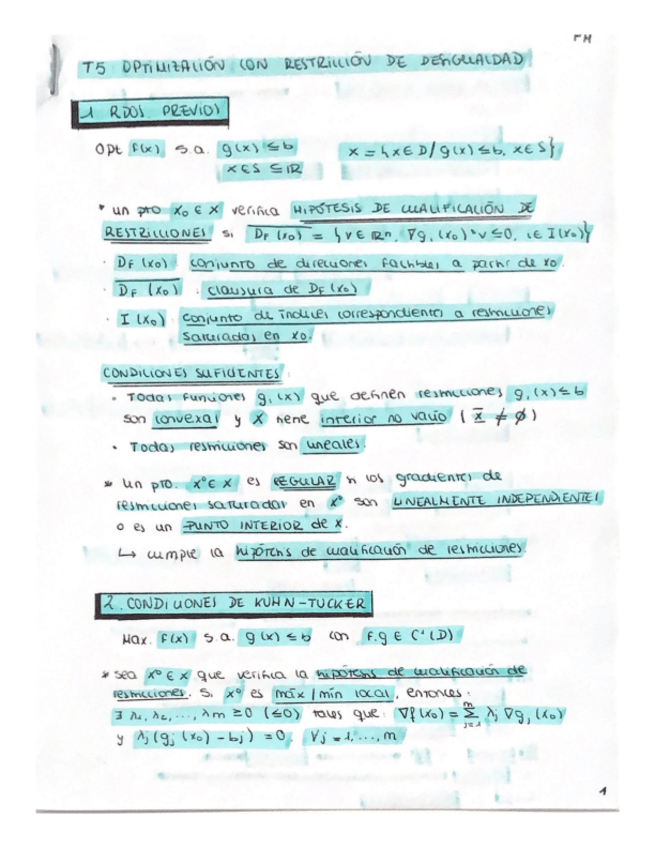 FM
T5 OPTIMIZACIÓN CON RESTRICCIÓN DE DESIGUALDAD
1 RDOS PREVIOS
Opt f(x) s.a. g(x) ≤ b X = {x ∈ D / g(x) ≤ b, x ∈ S}
x ∈ S ⊆ ℝ
* un pto x₀ ∈ X verifica HIPÓTESIS DE CUALIFICACIÓN DE
RESTRICCIONES si D̅F̅ ̅(̅x̅₀̅)̅ = {v ∈ ℝⁿ, ∇gᵢ(x₀)ᵗv ≤ 0, i ∈ I(x₀)}
· DF (x₀) conjunto de direcciones factibles a partir de x₀.
· D̅F̅ ̅(̅x̅₀̅)̅ : clausura de DF(x₀)
· I (x₀) conjunto de índices correspondientes a restricciones
saturadas en x₀.
CONDICIONES SUFICIENTES:
· Todas funciones gᵢ(x) que definen restricciones gᵢ(x) ≤ b
son convexas y X tiene interior no vacío ( X̄ ≠ ∅ )
· Todas restricciones son lineales
* Un pto. x⁰ ∈ X es REGULAR si los gradientes de
restricciones saturadas en x⁰ son LINEALMENTE INDEPENDIENTES
o es un PUNTO INTERIOR de X.
↳ cumple la hipótesis de cualificación de restricciones.
2. CONDICIONES DE KUHN-TUCKER
Max. f(x) s.a. g(x) ≤ b con f,g ∈ C¹(D)
* sea x⁰ ∈ X que verifica la hipótesis de cualificación de
restricciones. Si x⁰ es máx/mín local, entonces:
∃ λ₁, λ₂, ..., λm ≥ 0 (≤0) tales que: ∇f(x₀) = Σ_{j=1}^{m} λj ∇gj(x₀)
y λj (gj (x₀) - bj) = 0. ∀j = 1, ..., m
1